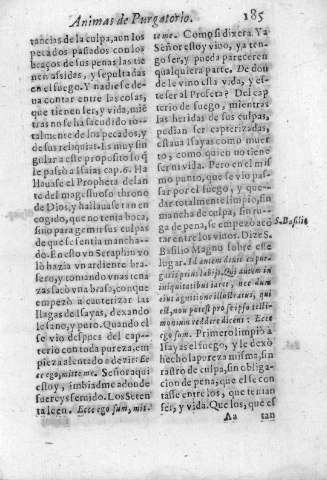 Animas de Purgatorio. 185
tancias de la culpa, aun los
pecados passados con los
braços de sus penas las tie
nen assidas, y sepultadas
en el fuego. Y nadie se de-
ua contar entre las cosas,
que tienen ser, y vida, miẽ
tras no se ha sacudido to-
talmente de los pecados, y
de sus reliquias. Es muy sin
gular a este proposito lo q̃
le passò a Isaias cap. 6. Ha
llauase el Propheta delan
te del magestuoso throno
de Dios, y hallauase tan en
cogido, que no tenia boca,
sino para gemir sus culpas
de que se sentia mancha-
do. En esto vn Seraphin vo
lò hazia vn ardiente bra-
sero, y tomando vnas tena
zas sacò vna brasa, con que
empezò a cauterizar las
llagas de Isayas, dexando
le sano, y puro. Quando el
se vio despues del cap-
terio con toda pureza, em
pieza alentado a dezir: Ec
ce ego, mitte me. Señor aqui
estoy, imbiadme adonde
fuereys seruido. Los Seten
ta leen. Ecce ego sum, mit-
te me. Como si dixera. Ya
Señor estoy viuo, ya ten-
go ser, y pueda parecer en
qualquiera parte. De don
de le vino essa vida, y es-
te ser al Profeta? Del cap
terio de fuego, mientras
las heridas de sus culpas,
pedian ser capterizadas,
estaua Isayas como muer
to, como quien no tiene
ser ni vida. Pero en el mis
mo punto, que se vio pas-
sar por el fuego, y que-
dar totalmente limpio, sin
mancha de culpa, sin ru-
ga de pena, se empezò a cõ
tar entre los viuos. Dize S.
S. Basilio
Basilio Magno sobre este
lugar. Id autem dixit expur-
gatis prius labijs. Qui autem in
iniquitatibus iacet, nec dum
eius agnitione illustratus, qui
est, non potest pro se ipso testi-
monium reddere dicens: Ecce
ego sum. Primero limpiò a
Isayas el fuego, y le dexò
hecho la pureza misma, sin
rastro de culpa, sin obliga-
cion de pena, que el se con
tasse entre los, que tenian
ser, y vida. Que los, que es
Aa tan